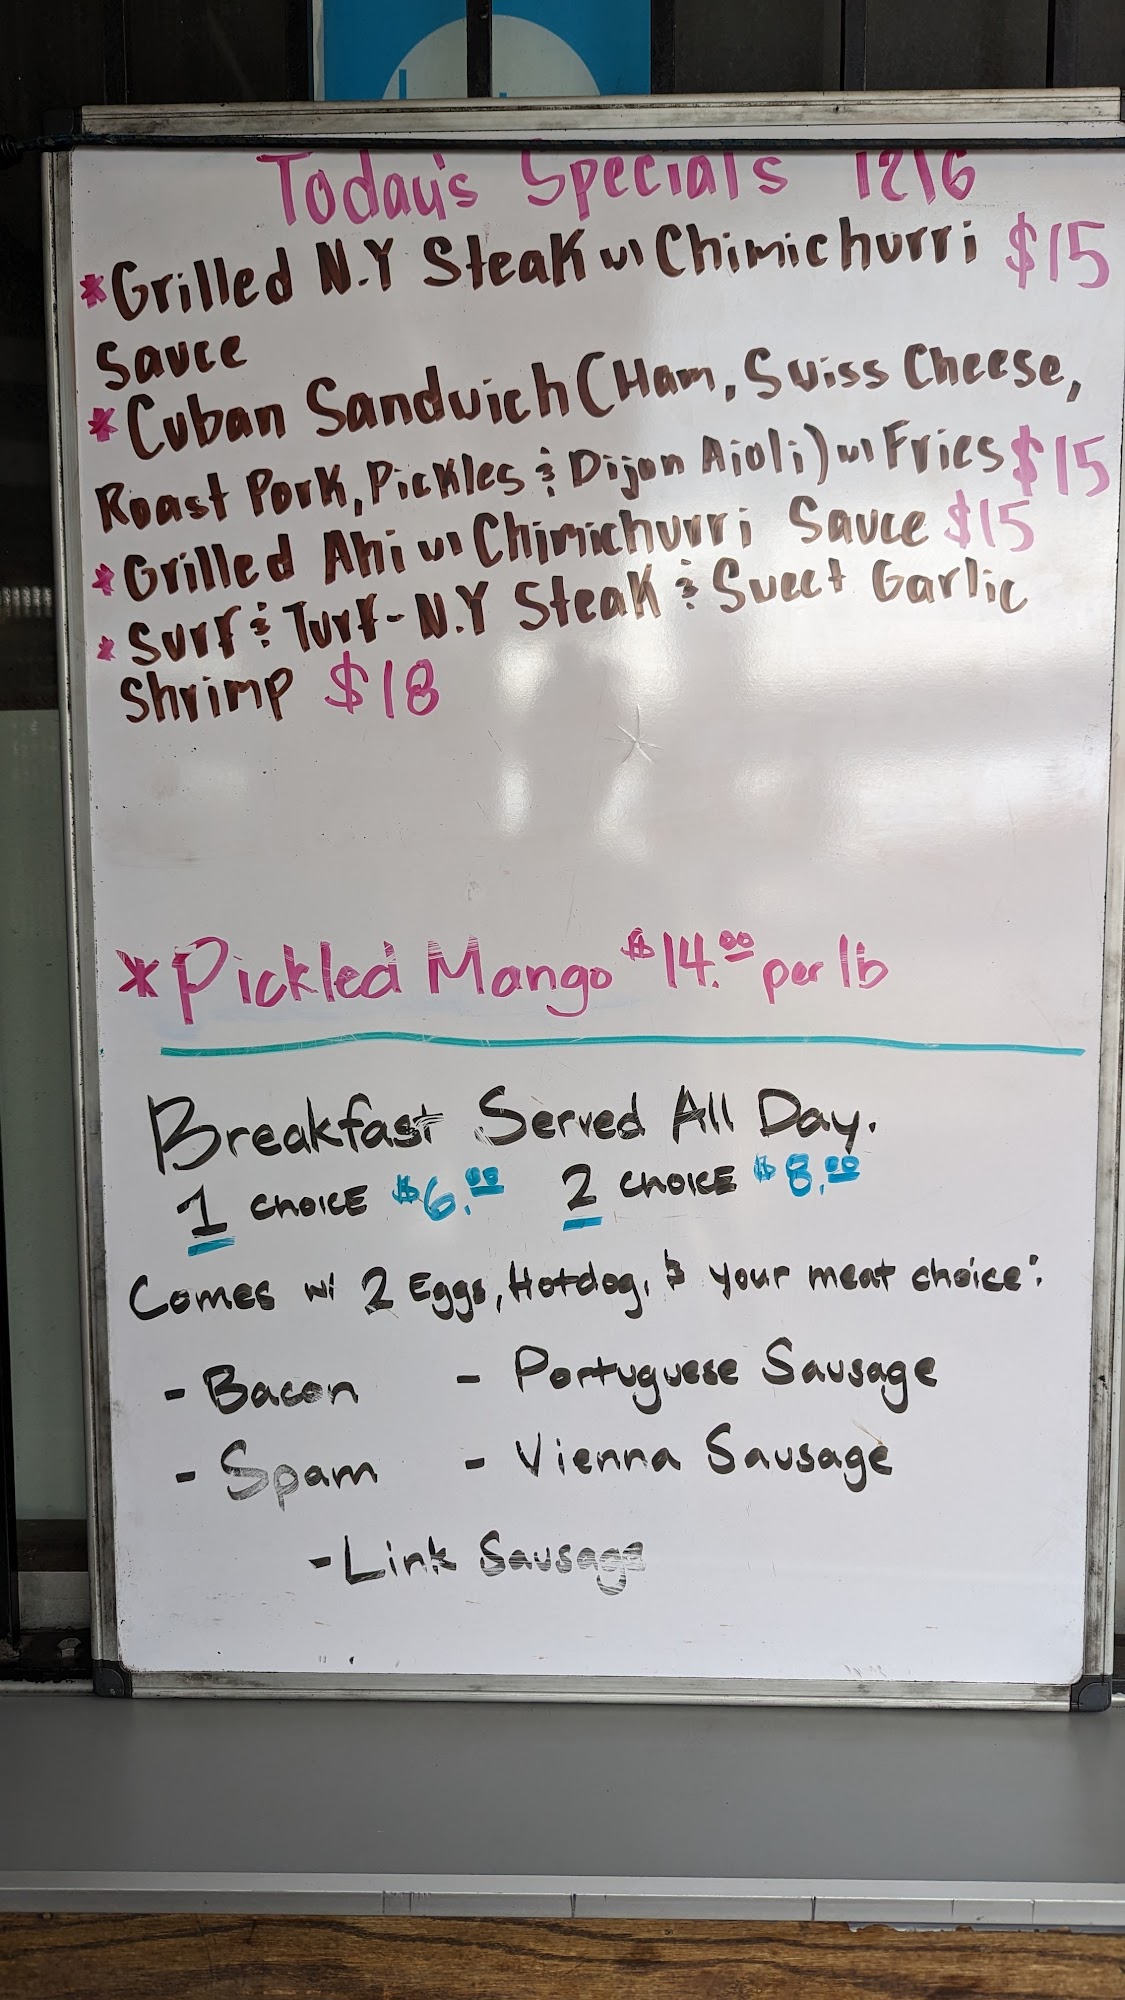 Today's Specials 12/6
*Grilled N.Y Steak w/ Chimichurri $15
Sauce
*Cuban Sandwich (Ham, Swiss Cheese,
Roast Pork, Pickles & Dijon Aioli) w/ Fries $15
*Grilled Ahi w/ Chimichurri Sauce $15
*Surf & Turf - N.Y Steak & Sweet Garlic
Shrimp $18
*Pickled Mango $14.00 per lb
Breakfast Served All Day.
1 CHOICE $6.00 2 CHOICE $8.00
Comes w/ 2 Eggs, Hotdog, & your meat choice:
- Bacon - Portuguese Sausage
- Spam - Vienna Sausage
- Link Sausage